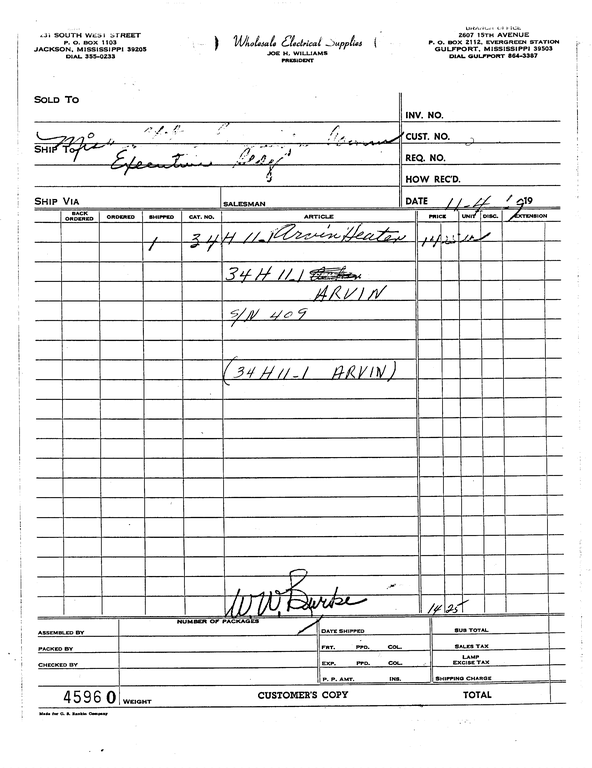 231 SOUTH WEST STREET
P. O. BOX 1103
JACKSON, MISSISSIPPI 39205
DIAL 355-0233
Wholesale Electrical Supplies
JOE H. WILLIAMS
PRESIDENT
BRANCH OFFICE
2607 15TH AVENUE
P. O. BOX 2112, EVERGREEN STATION
GULFPORT, MISSISSIPPI 39503
DIAL GULFPORT 864-3367
SOLD TO
INV. NO.
CUST. NO.
SHIP TO
Executive Bldg
REQ. NO.
HOW REC'D.
SHIP VIA
SALESMAN
DATE 11-4 19
BACK ORDERED
ORDERED
SHIPPED
CAT. NO.
ARTICLE
PRICE
UNIT
DISC.
EXTENSION
1 34H 11-1 Arvin Heater 14 25
34H 11-1
ARVIN
S/N 409
(34H11-1 ARVIN)
W.W. Burke 14 25
NUMBER OF PACKAGES
ASSEMBLED BY
DATE SHIPPED
SUB TOTAL
PACKED BY
FRT. PPD. COL.
SALES TAX
CHECKED BY
EXP. PPD. COL.
LAMP EXCISE TAX
P. P. AMT. INS.
SHIPPING CHARGE
45960 WEIGHT
CUSTOMER'S COPY
TOTAL
Made for C. S. Rankin Company